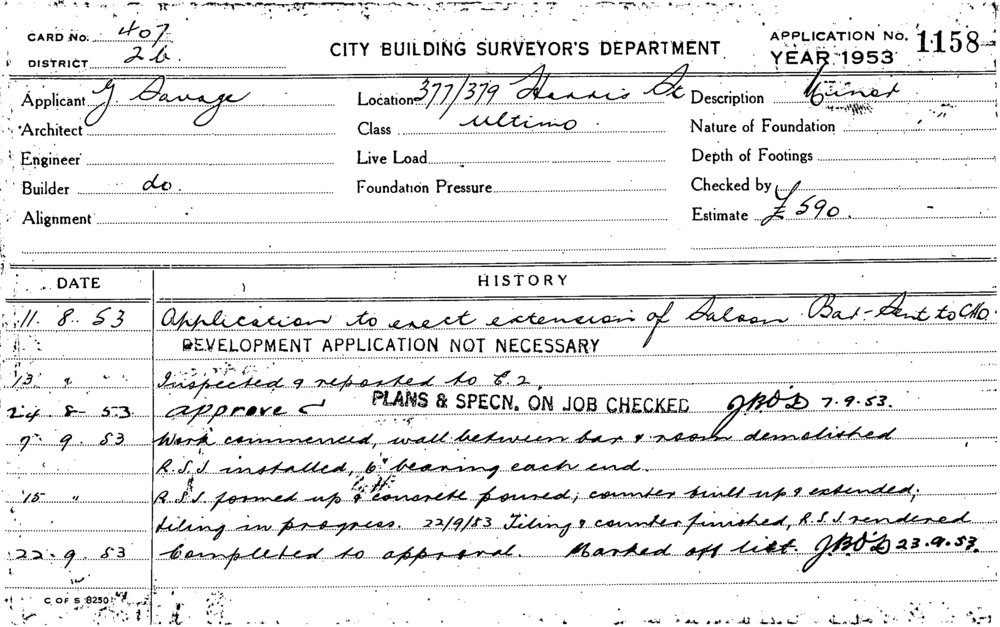 CARD No. 407
DISTRICT 26.
CITY BUILDING SURVEYOR'S DEPARTMENT
APPLICATION No. 1158
YEAR 1953
Applicant G Savage
Location 377/379 Harris St
Description Minor
Architect
Class Ultimo
Nature of Foundation
Engineer
Live Load
Depth of Footings
Builder do.
Foundation Pressure
Checked by
Alignment
Estimate £590.
DATE HISTORY
11. 8. 53 Application to erect extension of Saloon Bar - Sent to CHO.
DEVELOPMENT APPLICATION NOT NECESSARY
13 " " Inspected & reported to C.2.
24 8 53 approved PLANS & SPECN. ON JOB CHECKED JBO'D 7.9.53.
7 9. 53 Work commenced, wall between bar & room demolished
R.S.J installed, 6" bearing each end.
15 " R.S.J formed up & concrete poured; counter built up & extended;
tiling in progress. 22/9/53 Tiling & counter finished, R.S.J rendered
22.9. 53 Completed to approval. Marked off list. JBO'D 23.9.53.
C OF S 8250